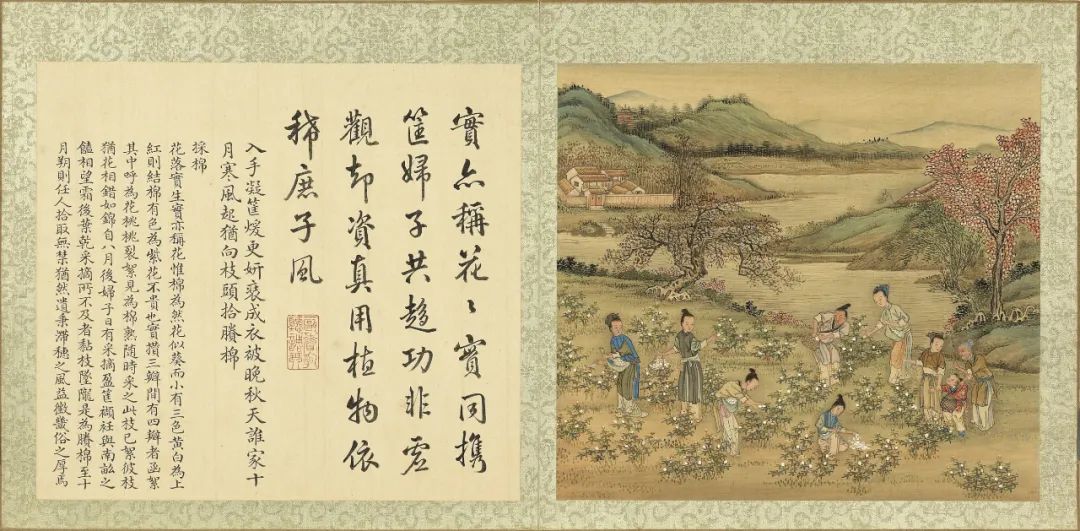 實亦稱花〻實同携
筐婦子共趍功非虛
觀却資真用植物依
稀庶子風
入手凝筐煖更妍裒成衣被晚秋天誰家十
月寒風起猶向枝頭拾賸棉
採棉
花落實生實亦稱花惟棉為然花似葵而小有三色黃白為上
紅則結棉有色為紫花不貴也實攢三瓣間有四瓣者函絮
其中呼為花桃桃裂絮見為棉熟隨時采之此枝已絮彼枝
猶花相錯如錦自八月後婦子日有采摘盈筐襭衽與南畝之
饁相望霜後葉乾采摘所不及者黏枝墜隴是為賸棉至十
月朔則任人拾取無禁猶然遺秉滯穗之風益徵畿俗之厚焉